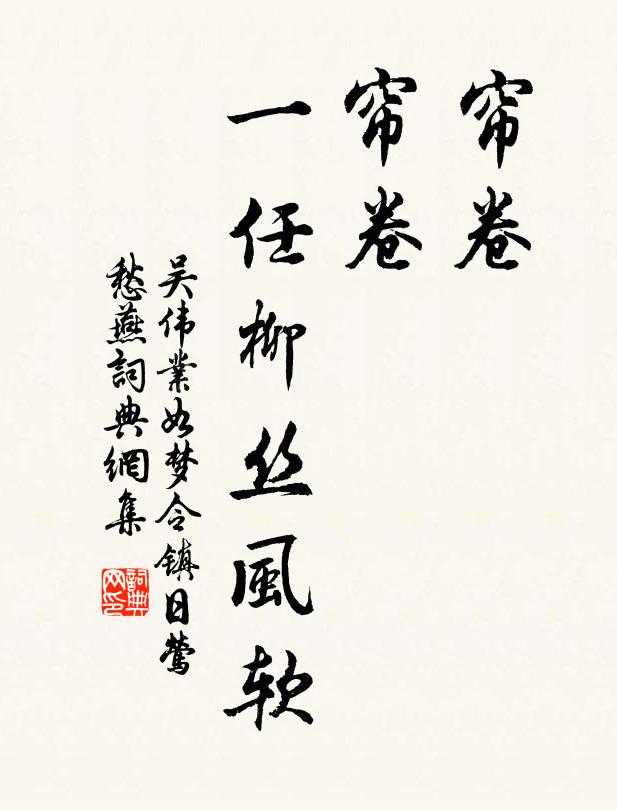 帘卷
帘卷
一任柳丝風软
吴伟業如梦令镇日莺
愁燕詞典網集
詞典网印